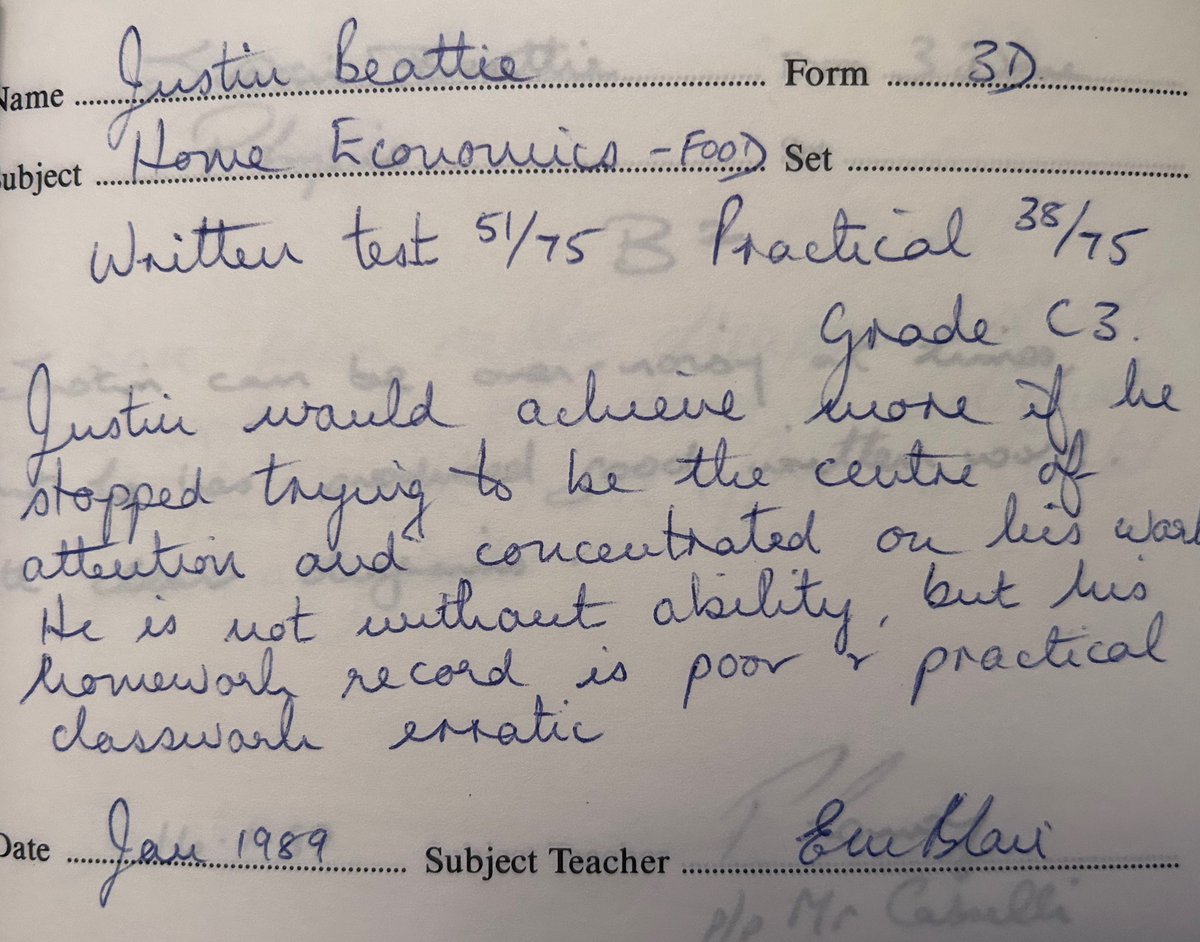 Name Justin Beattie Form 3D
Subject Home Economics - FOOD Set
Written test 51/75 Practical 38/75
Grade C3.
Justin would achieve more if he
stopped trying to be the centre of
attention and concentrated on his work
He is not without ability, but his
homework record is poor & practical
classwork erratic
Date Jan 1989 Subject Teacher
p/p Mr